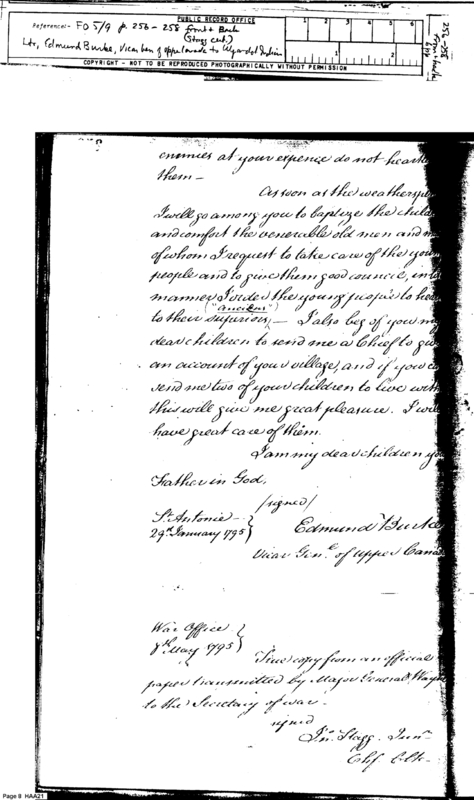 PUBLIC RECORD OFFICE
Reference:- FO 5/9 p. 256 - 258 front & Back
(Stagg cert.)
Ltr, Edmund Burke, Vicar Gen of upper Canada to Wyandot Indians
COPYRIGHT - NOT TO BE REPRODUCED PHOTOGRAPHICALLY WITHOUT PERMISSION
enemies at your expence do not
them –
As soon as the weather
I will go among you to baptize the
and comfort the venerable old men and
of whom I request to take care of the
people and to give them good council, in
manner I order the young people to
("ancient")
to their superiors, – I also beg of you my
dear children to send me a Chief to
an account of your village, and if you
send me two of your children to live
this will give me great pleasure. I will
have great care of them.
I am my dear children
Father in God,
/signed/
St Antonie –
29th January 1795 }
Edmund Burke
Vicar Genl of upper
War Office }
8th May 1795 }
True copy from an official
paper transmitted by Major General
to the Secretary of war.
signed
Jno Stagg Junr
Chf Clk.
Page 8 HAA21